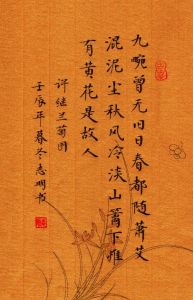 九畹曾无旧日春都随萧艾
混泥尘秋风冷淡山篱下惟
有黄花是故人
许继兰菊图
壬辰年暮冬志明书